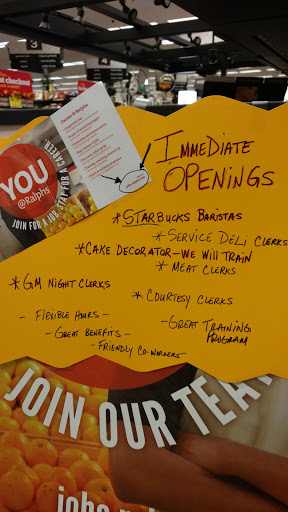 3
4
YOU
@Ralphs
JOIN FOR A JOB, STAY FOR A CAREER
IMMEDIATE
OPENINGS
* STARBUCKS BARISTAS
* SERVICE DELI CLERKS
* CAKE DECORATOR - WE WILL TRAIN
* MEAT CLERKS
* GM NIGHT CLERKS
* COURTESY CLERKS
- FLEXIBLE HOURS -
- GREAT TRAINING
PROGRAM
- GREAT BENEFITS -
- FRIENDLY CO-WORKERS -
JOIN OUR TEA